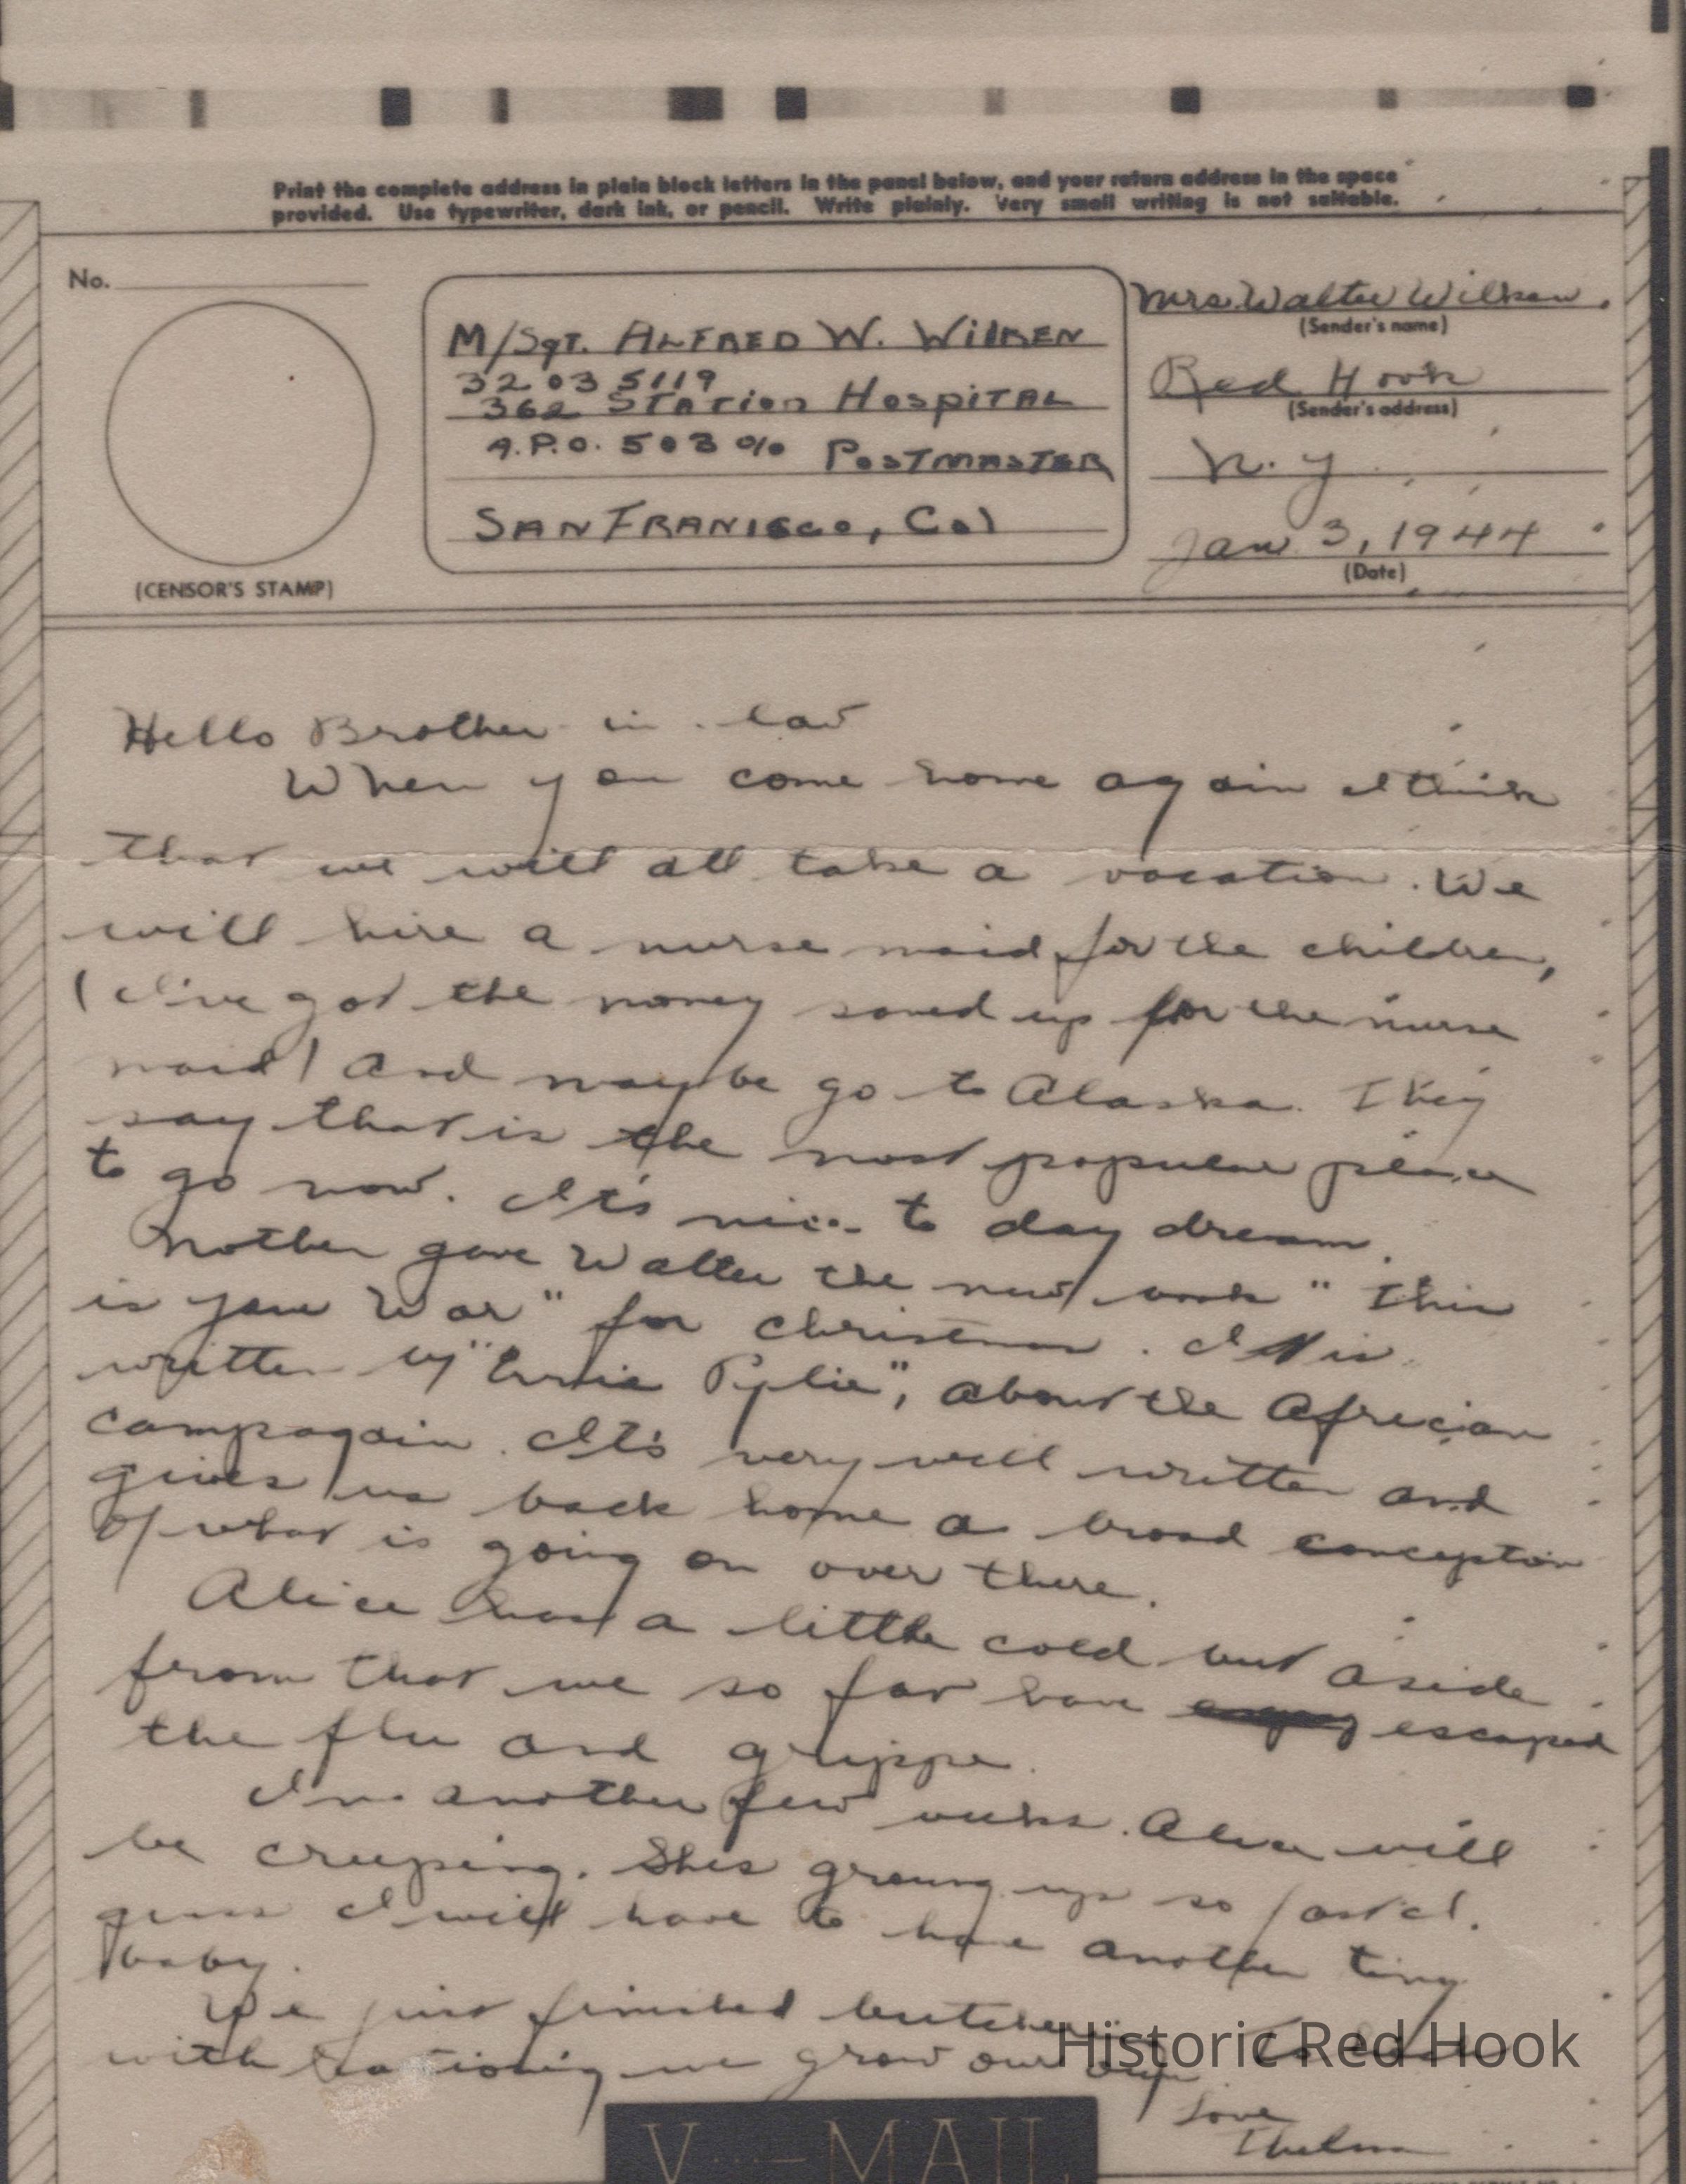 Print the complete address in plain block letters in the panel below, and your return address in the space
provided. Use typewriter, dark ink, or pencil. Write plainly. Very small writing is not suitable.
No.
(CENSOR'S STAMP)
M/Sgt. ALFRED W. WilKEN
32035119
362 STATion HOSPITAL
A.P.O. 503 % POSTMASTER
SAN FRANISCO, Cal
Mrs. Walter Wilken
(Sender's name)
Red Hook
(Sender's address)
N.Y.
Jan 3, 1944
(Date)
Hello Brother-in-law
When you come home again I think
that we will all take a vacation. We
will hire a nurse maid for the children,
(I've got the money saved up for the nurse
maid) and maybe go to Alaska. They
say that is the most popular place
to go now. It's nice to day dream.
Mother gave Walter the new book "This
is your War" for Christmas. It is
written by "Ernie Pylie", about the Africian
campagain. It's very well written and
gives us back home a broad conception
of what is going on over there.
Alice has a little cold but aside
from that we so far have escaped
the flu and grippe.
In another few weeks Alice will
be creeping. Shes growing up so fast I
guess I will have to have another tiny
baby.
We just finished
with rationing we grow our own
Love
Thelma
Historic Red Hook
V···—MAIL